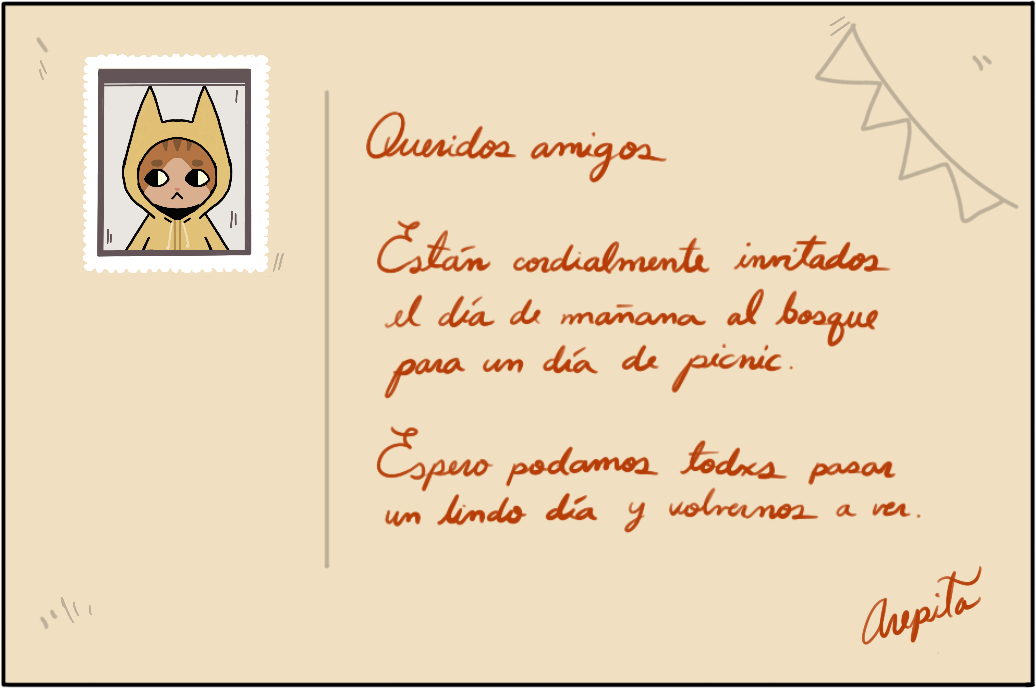 Queridos amigos
Están cordialmente invitados
el día de mañana al bosque
para un día de picnic.
Espero podamos todxs pasar
un lindo día y volvernos a ver.
Arepita